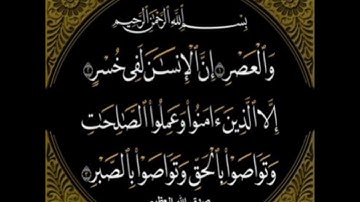 بِسْمِ اللَّهِ الرَّحْمَٰنِ الرَّحِيمِ
وَٱلْعَصْرِ ١ إِنَّ ٱلْإِنسَٰنَ لَفِى خُسْرٍ ٢
إِلَّا ٱلَّذِينَ ءَامَنُوا۟ وَعَمِلُوا۟ ٱلصَّٰلِحَٰتِ
وَتَوَاصَوْا۟ بِٱلْحَقِّ وَتَوَاصَوْا۟ بِٱلصَّبْرِ ٣
صدق الله العظيم